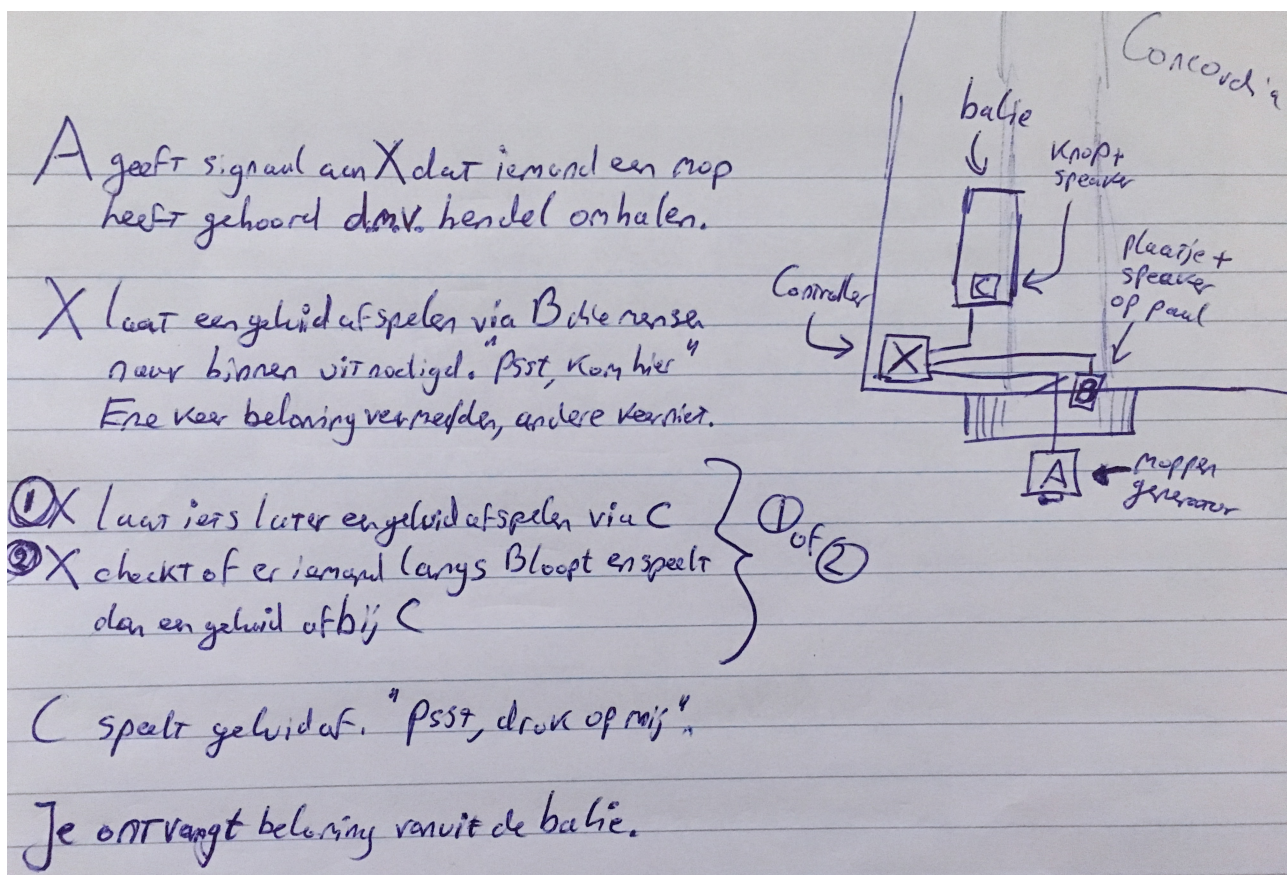 A geeft signaal aan X dat iemand een mop
heeft gehoord d.m.v. hendel omhalen.
X laat een geluid afspelen via B die mensen
naar binnen uitnodigd. "Psst, kom hier"
Ene keer beloning vermelden, andere keer niet.
① X laat iets later een geluid afspelen via C
② X checkt of er iemand langs B loopt en speelt
dan een geluid af bij C
① of ②
C speelt geluid af. "Psst, druk op mij".
Je ontvangt beloning vanuit de balie.
Concordia
balie
Knop +
speaker
C
plaatje +
speaker
op paal
Controller
X
B
A
Moppen
generator